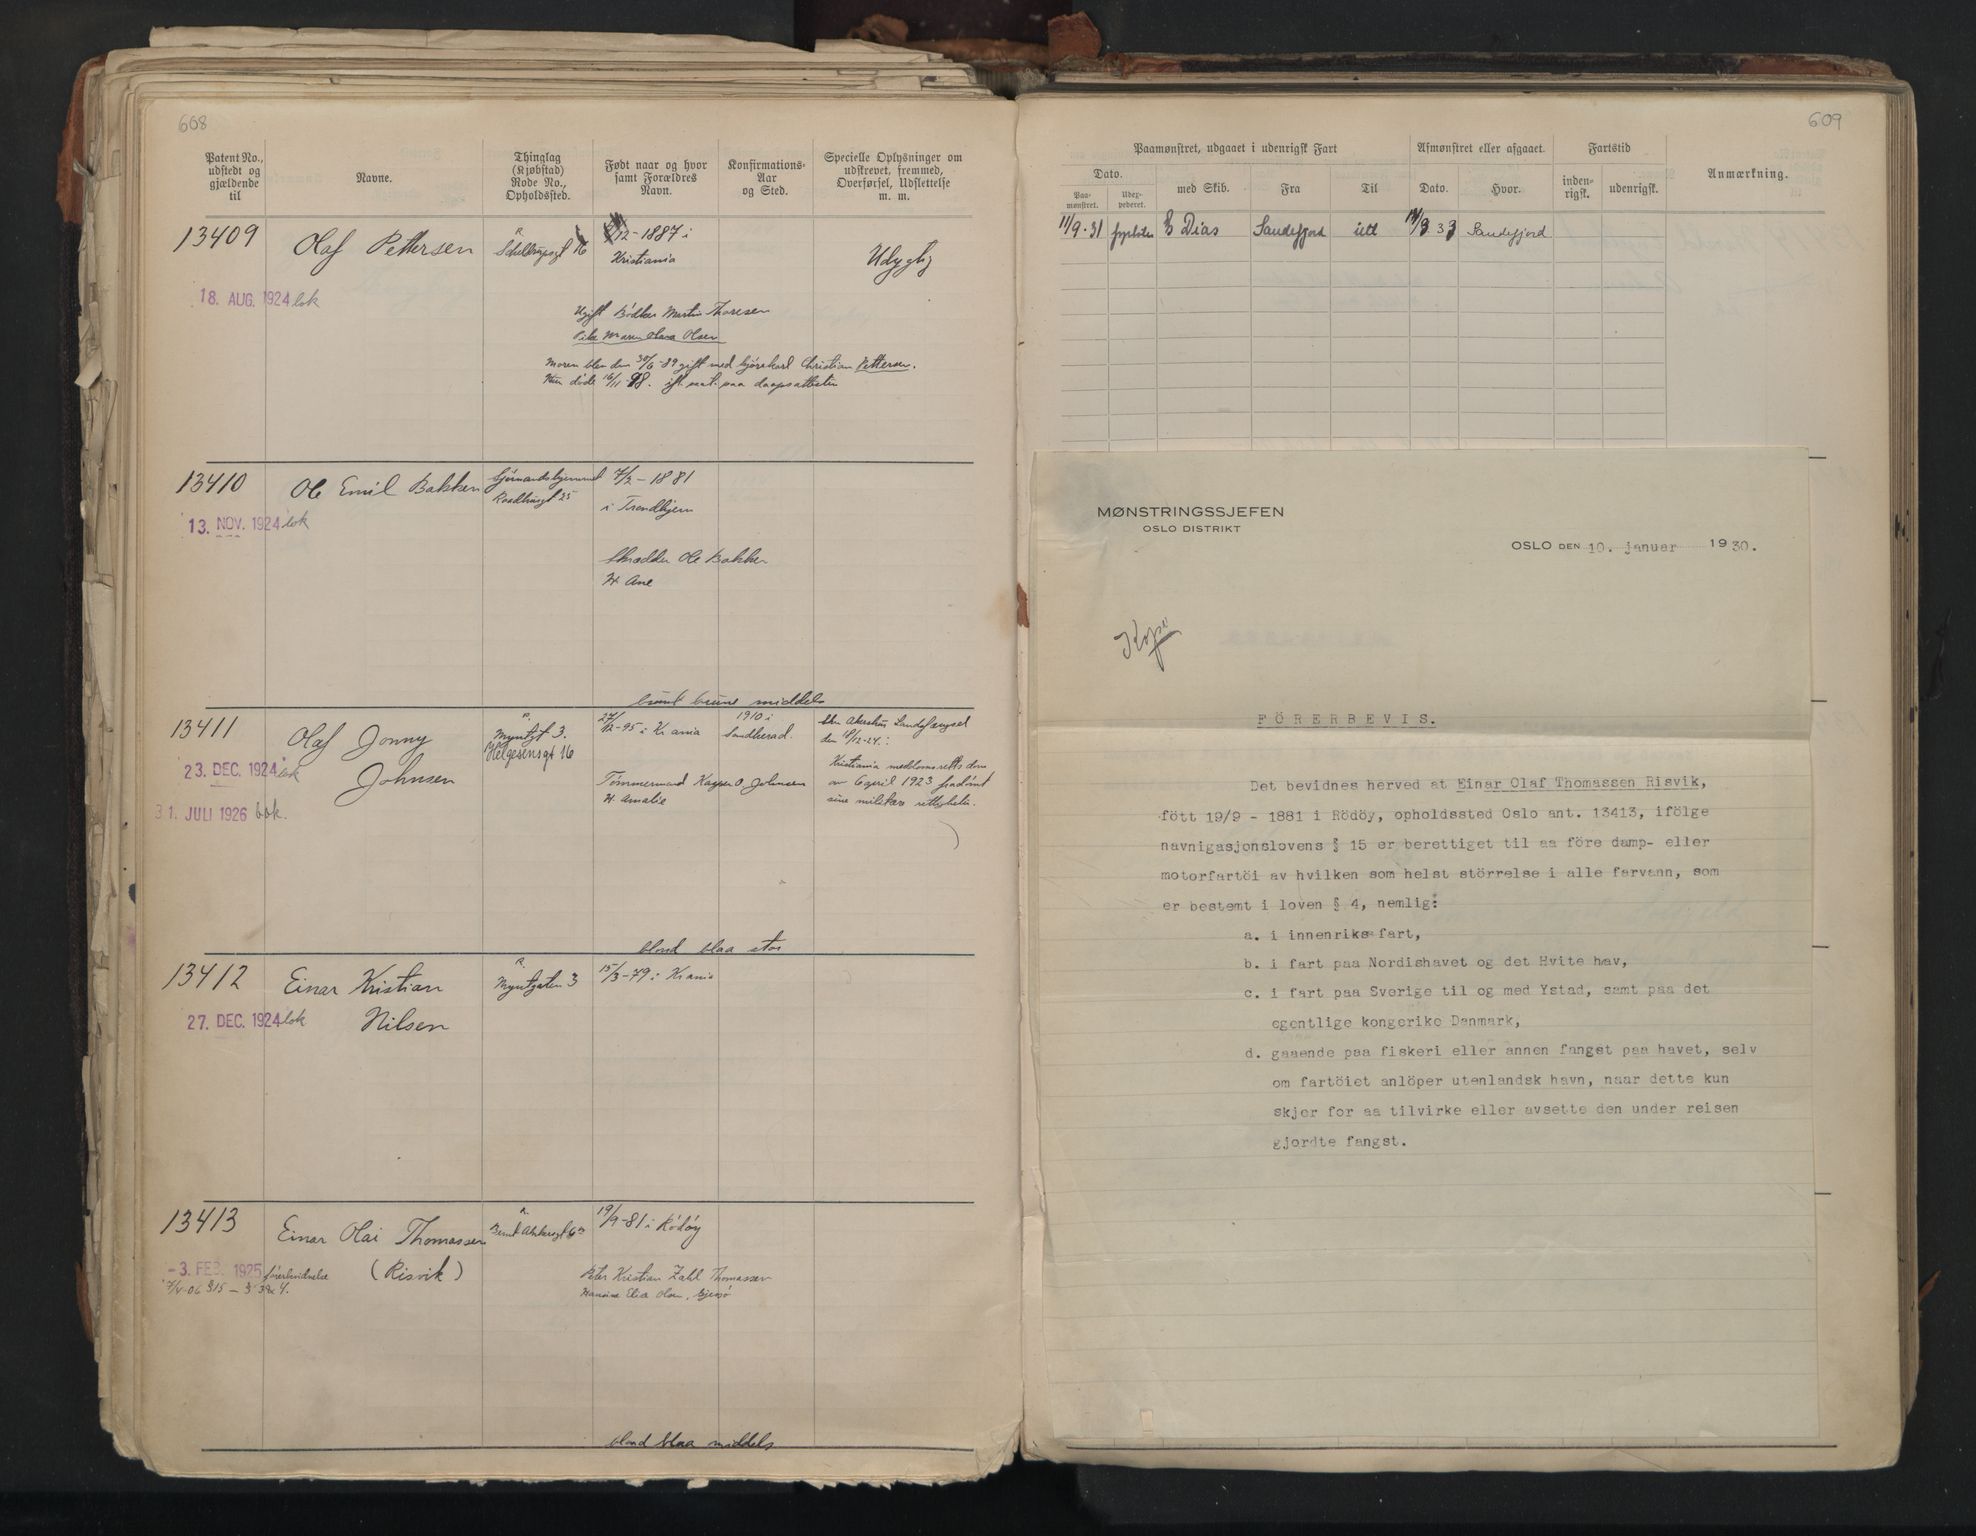 608
Patent No., udstedt og gjældende til
Navne.
Thinglag (Kjøbstad) Rode No., Opholdssted.
Født naar og hvor samt Forældres Navn.
Konfirmations-Aar og Sted.
Specielle Oplysninger om udskrevet, fremmed, Overførsel, Udslettelse m. m.
13409
Olaf Pettersen
12-1887 i
Kristiania
Udygtig
18. AUG. 1924 lok
Ugift Bødker Martin Thoresen
Pike Maren Olava Olsen
Moren blev den 30/6-89 gift med kjørekarl Christian Pettersen.
Hun døde 16/11-98. ifl. paa daapsattesten
13410
Ole Emil Bakken
Sjømandshjemmet
Raadhusgt 25
7/2 - 1881
i Trondhjem
13. NOV. 1924 lok
Skrædder Ole Bakken
H. Ane
brunt brune middels
13411
Olaf Jonny
Johnsen
Myntgt 3.
Helgesensgt 16
27/12-95 i Krania
1910 i
Sandherad.
blev Akershus Landsfængsel
den 18/12-24.:
Kristiania meddomsretts dom
av 6 april 1923 fradømt
sine militære rettigheter.
23. DEC. 1924 lok
31. JULI 1926 bok.
Tømmermand Kasper O. Johnsen
H. Amalie
blond blaa stor
13412
Einar Kristian
Nilsen
Myntgaten 3
15/3-79 i Krania
27. DEC. 1924 lok
13413
Einar Olai Thomassen
(Risvik)
Bernt Ankersgt 6 B
19/9-81 i Rødøy
-3. FEB. 1925 førerbevidnelse
7/4-06 §15 -
Peter Kristian Zahl Thomassen
Hansine Elia Olsen,
blond blaa middels
609
Paamønstret, udgaaet i udenrigsk Fart
Afmønstret eller afgaaet.
Fartstid
Anmærkning.
Dato.
Paa-mønstret.
Udex-pederet.
med Skib.
Fra
Til
Dato.
Hvor.
inden-rigsk.
udenrigsk.
11/9.31
S Dias
Sandefjord
9.33
Sandefjord
MØNSTRINGSSJEFEN
OSLO DISTRIKT
OSLO DEN 10. januar 1930.
Kopi
FÖRERBEVIS.
Det bevidnes herved at Einar Olaf Thomassen Risvik,
fött 19/9 - 1881 i Rödöy, opholdssted Oslo ant. 13413, ifölge
navnigasjonslovens § 15 er berettiget til aa före damp- eller
motorfartöi av hvilken som helst störrelse i alle farvann, som
er bestemt i loven § 4, nemlig:
a. i innenriks fart,
b. i fart paa Nordishavet og det Hvite hav,
c. i fart paa Sverige til og med Ystad, samt paa det
egentlige kongerike Danmark,
d. gaaende paa fiskeri eller annen fangst paa havet, selv
om fartöiet anlöper utenlandsk havn, naar dette kun
skjer for aa tilvirke eller avsette den under reisen
gjordte fangst.